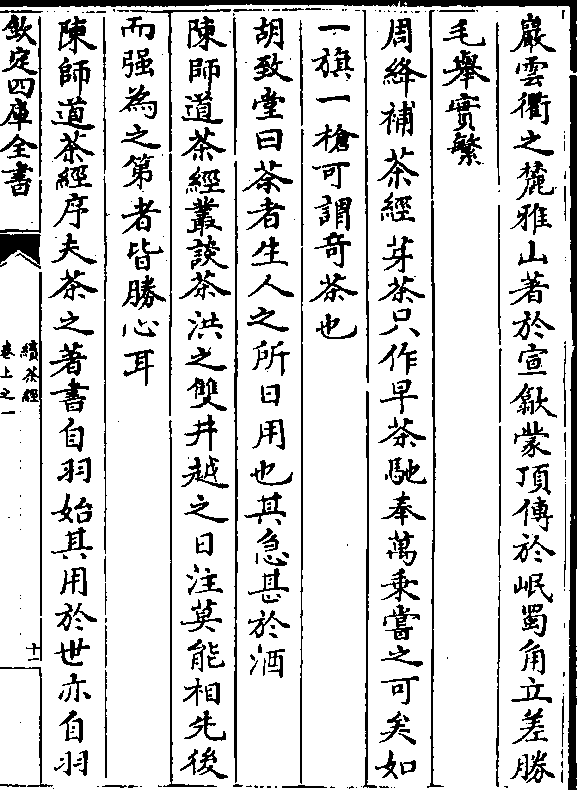 巖雲衢之麓雅山著於宣歙蒙頂傳於岷蜀角立差勝
毛舉實繁
周絳補茶經芽茶只作早茶馳奉萬乗嘗之可矣如
一旗一槍可謂奇茶也
胡致堂曰茶者生人之所日用也其急甚於酒
陳師道茶經叢談茶洪之雙井越之日注莫能相先後
而强為之第者皆勝心耳
陳師道茶經序夫茶之著書自羽始其用於世亦自羽
欽定四庫全書
續茶經
卷上之一
十一